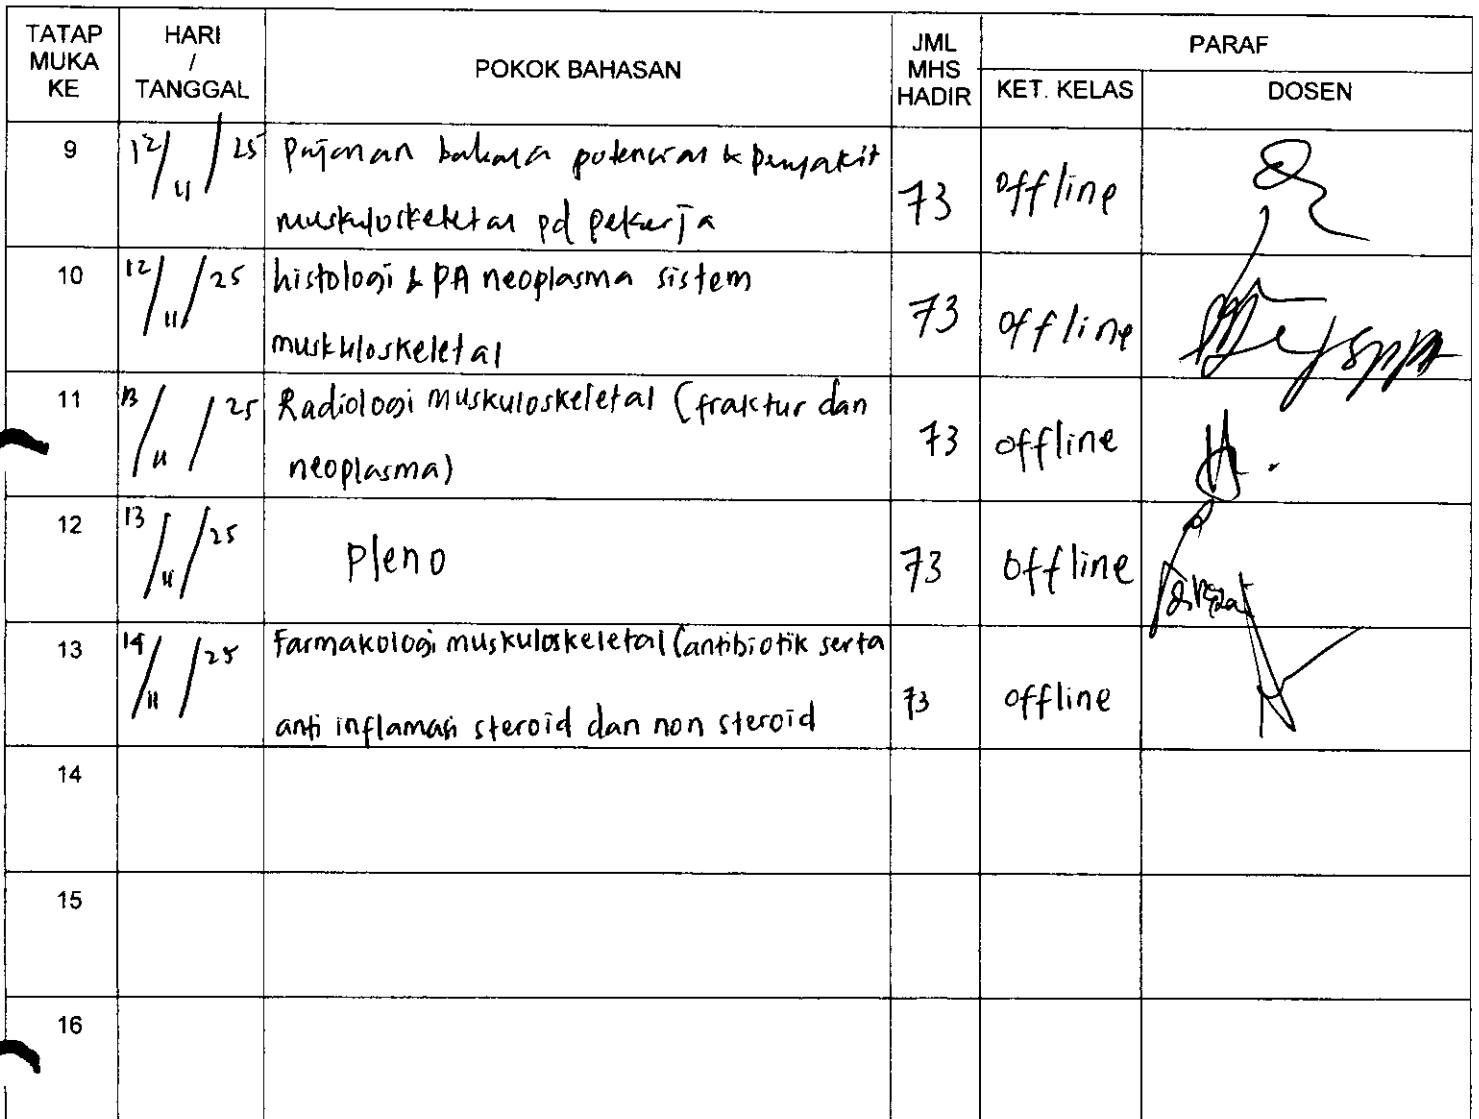 TATAP MUKA KE HARI / TANGGAL POKOK BAHASAN JML MHS HADIR PARAF
KET. KELAS DOSEN
9 12/11/25 Pajanan bahaya potensial & penyakit
muskuloskeletal pd pekerja 73 offline
10 12/11/25 histologi & PA neoplasma sistem
muskuloskeletal 73 offline
11 13/11/25 Radiologi muskuloskeletal (fraktur dan
neoplasma) 73 offline
12 13/11/25 pleno 73 offline
13 14/11/25 Farmakologi muskuloskeletal (antibiotik serta
anti inflamasi steroid dan non steroid 73 offline
14
15
16